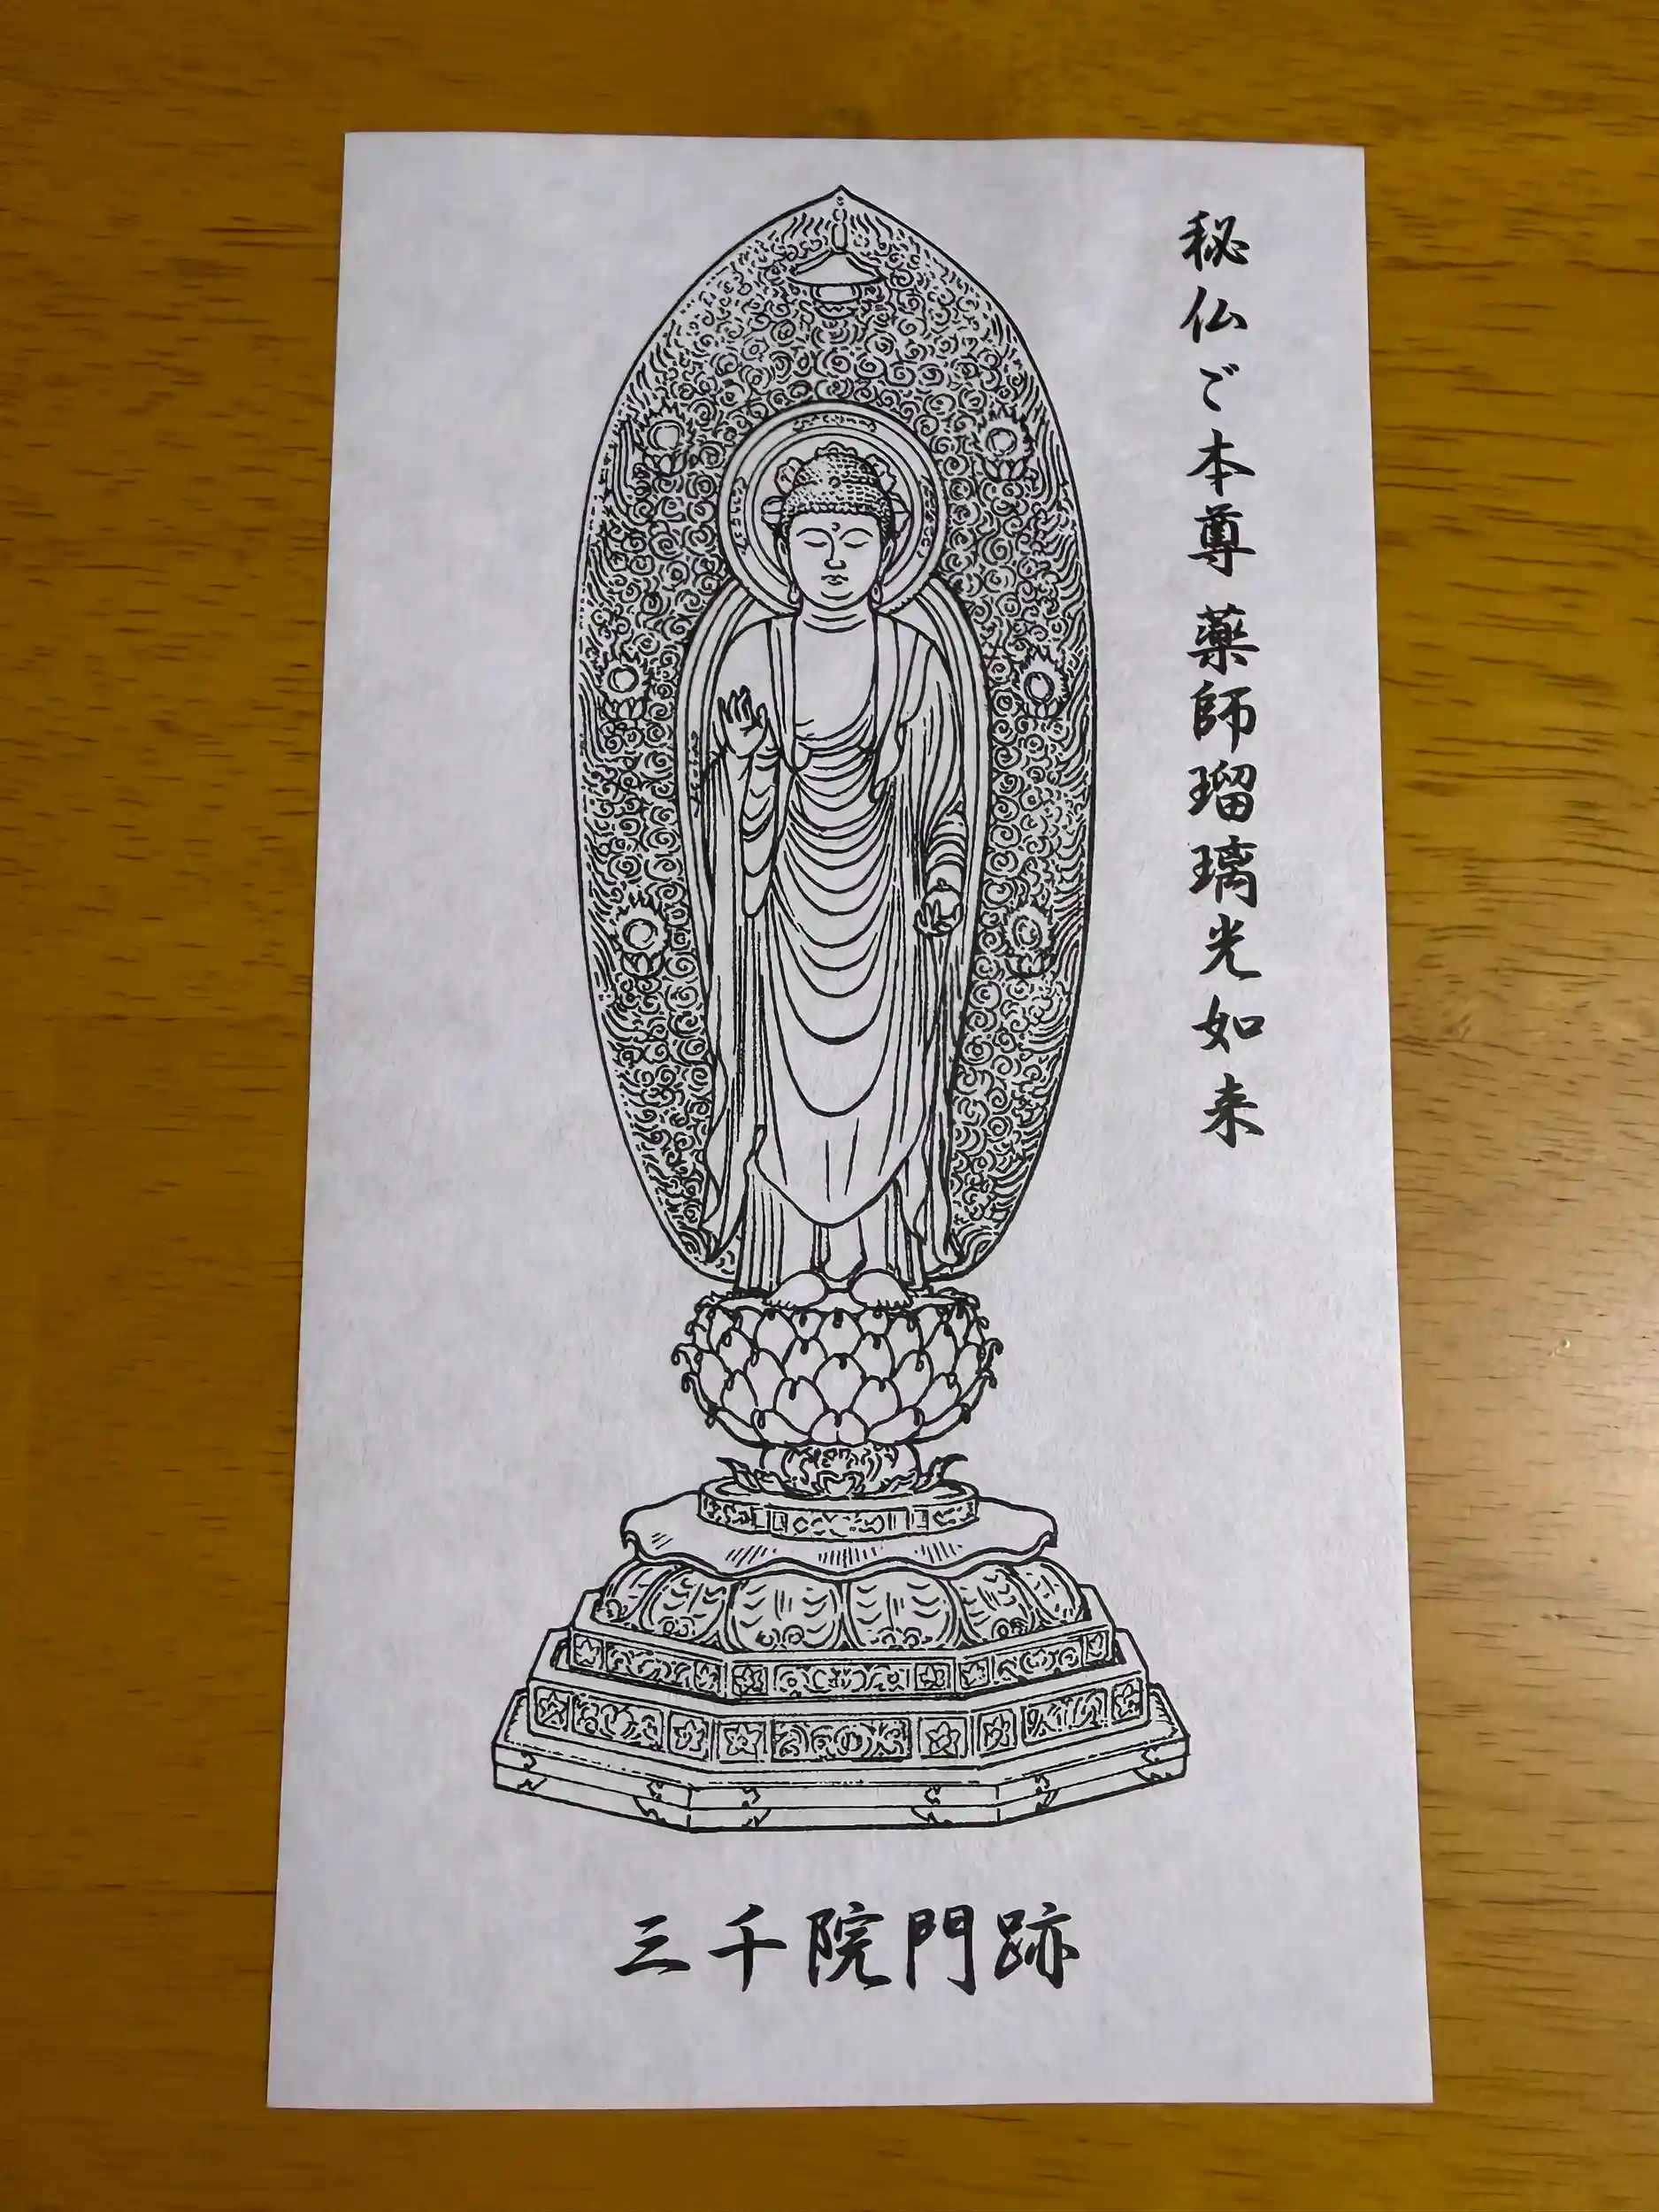 秘仏ご本尊 薬師瑠璃光如来
三千院門跡